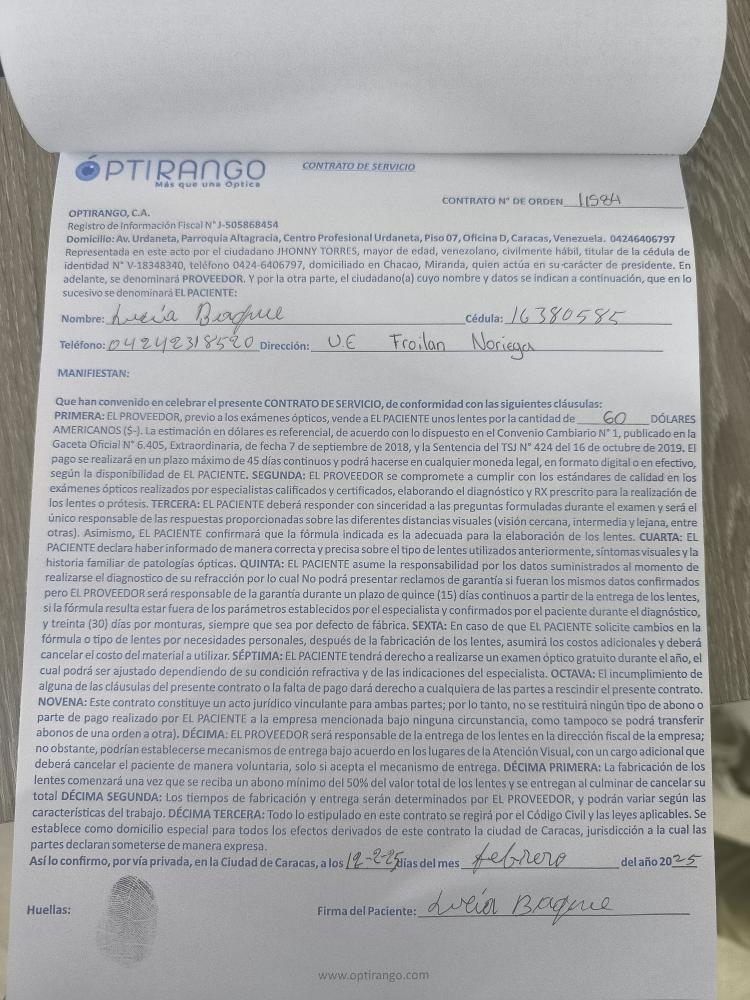 OPTIRANGO
Más que una Óptica
CONTRATO DE SERVICIO
CONTRATO N° DE ORDEN 11584
OPTIRANGO, C.A.
Registro de Información Fiscal N° J-505868454
Domicilio: Av. Urdaneta, Parroquia Altagracia, Centro Profesional Urdaneta, Piso 07, Oficina D, Caracas, Venezuela. 04246406797
Representada en este acto por el ciudadano JHONNY TORRES, mayor de edad, venezolano, civilmente hábil, titular de la cédula de
identidad N° V-18348340, teléfono 0424-6406797, domiciliado en Chacao, Miranda, quien actúa en su carácter de presidente. En
adelante, se denominará PROVEEDOR. Y por la otra parte, el ciudadano(a) cuyo nombre y datos se indican a continuación, que en lo
sucesivo se denominará EL PACIENTE:
Nombre: Lucía Baque Cédula: 16380585
Teléfono: 04242318520 Dirección: U.E Froilan Noriega
MANIFIESTAN:
Que han convenido en celebrar el presente CONTRATO DE SERVICIO, de conformidad con las siguientes cláusulas:
PRIMERA: EL PROVEEDOR, previo a los exámenes ópticos, vende a EL PACIENTE unos lentes por la cantidad de 60 DÓLARES
AMERICANOS ($-). La estimación en dólares es referencial, de acuerdo con lo dispuesto en el Convenio Cambiario N° 1, publicado en la
Gaceta Oficial N° 6.405, Extraordinaria, de fecha 7 de septiembre de 2018, y la Sentencia del TSJ N° 424 del 16 de octubre de 2019. El
pago se realizará en un plazo máximo de 45 días continuos y podrá hacerse en cualquier moneda legal, en formato digital o en efectivo,
según la disponibilidad de EL PACIENTE. SEGUNDA: EL PROVEEDOR se compromete a cumplir con los estándares de calidad en los
exámenes ópticos realizados por especialistas calificados y certificados, elaborando el diagnóstico y RX prescrito para la realización de
los lentes o prótesis. TERCERA: EL PACIENTE deberá responder con sinceridad a las preguntas formuladas durante el examen y será el
único responsable de las respuestas proporcionadas sobre las diferentes distancias visuales (visión cercana, intermedia y lejana, entre
otras). Asimismo, EL PACIENTE confirmará que la fórmula indicada es la adecuada para la elaboración de los lentes. CUARTA: EL
PACIENTE declara haber informado de manera correcta y precisa sobre el tipo de lentes utilizados anteriormente, síntomas visuales y la
historia familiar de patologías ópticas. QUINTA: EL PACIENTE asume la responsabilidad por los datos suministrados al momento de
realizarse el diagnostico de su refracción por lo cual No podrá presentar reclamos de garantía si fueran los mismos datos confirmados
pero EL PROVEEDOR será responsable de la garantía durante un plazo de quince (15) días continuos a partir de la entrega de los lentes,
si la fórmula resulta estar fuera de los parámetros establecidos por el especialista y confirmados por el paciente durante el diagnóstico,
y treinta (30) días por monturas, siempre que sea por defecto de fábrica. SEXTA: En caso de que EL PACIENTE solicite cambios en la
fórmula o tipo de lentes por necesidades personales, después de la fabricación de los lentes, asumirá los costos adicionales y deberá
cancelar el costo del material a utilizar. SÉPTIMA: EL PACIENTE tendrá derecho a realizarse un examen óptico gratuito durante el año, el
cual podrá ser ajustado dependiendo de su condición refractiva y de las indicaciones del especialista. OCTAVA: El incumplimiento de
alguna de las cláusulas del presente contrato o la falta de pago dará derecho a cualquiera de las partes a rescindir el presente contrato.
NOVENA: Este contrato constituye un acto jurídico vinculante para ambas partes; por lo tanto, no se restituirá ningún tipo de abono o
parte de pago realizado por EL PACIENTE a la empresa mencionada bajo ninguna circunstancia, como tampoco se podrá transferir
abonos de una orden a otra). DÉCIMA: EL PROVEEDOR será responsable de la entrega de los lentes en la dirección fiscal de la empresa;
no obstante, podrían establecerse mecanismos de entrega bajo acuerdo en los lugares de la Atención Visual, con un cargo adicional que
deberá cancelar el paciente de manera voluntaria, solo si acepta el mecanismo de entrega. DÉCIMA PRIMERA: La fabricación de los
lentes comenzará una vez que se reciba un abono mínimo del 50% del valor total de los lentes y se entregan al culminar de cancelar su
total DÉCIMA SEGUNDA: Los tiempos de fabricación y entrega serán determinados por EL PROVEEDOR, y podrán variar según las
características del trabajo. DÉCIMA TERCERA: Todo lo estipulado en este contrato se regirá por el Código Civil y las leyes aplicables. Se
establece como domicilio especial para todos los efectos derivados de este contrato la ciudad de Caracas, jurisdicción a la cual las
partes declaran someterse de manera expresa.
Así lo confirmo, por vía privada, en la Ciudad de Caracas, a los 12-2-25 días del mes febrero del año 2025
Huellas: Firma del Paciente: Lucía Baque
www.optirango.com